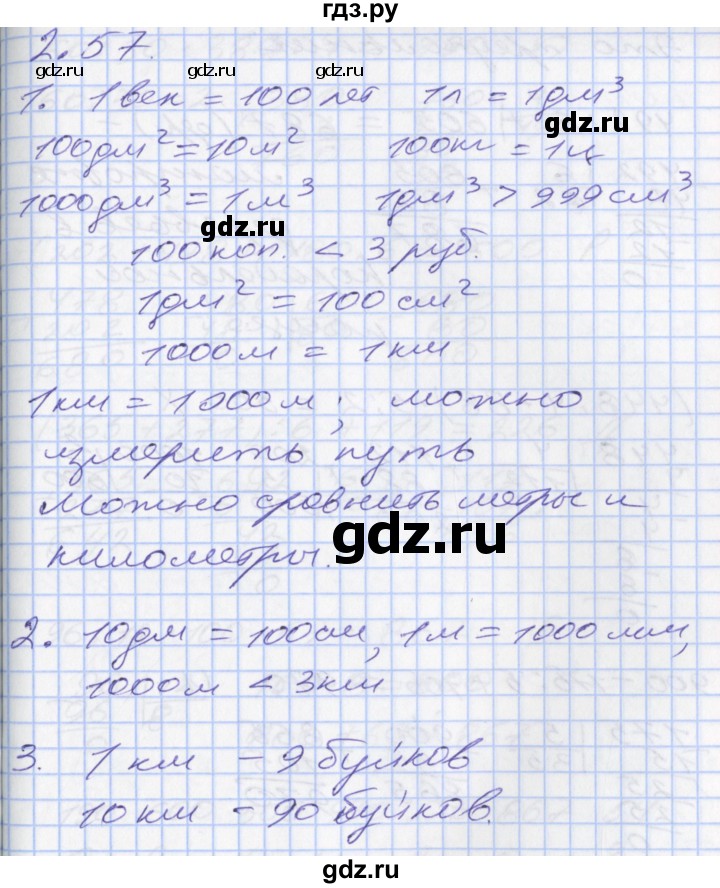 гдз.ру
2.57.
gdz.ru gdz.ru gdz.ru
1. 1 век = 100 лет 1л = 1дм³
gdz.ru
100дм² = 10м² 100кг = 1ц
1000дм³ = 1м³ 1дм³ > 999см³
gdz.ru
100 коп. < 3 руб.
1дм² = 100см²
1000м = 1км
1км = 1000м; можно
измерить путь
Можно сравнить метры и
gdz.ru
километры.
2. 10дм = 100см, 1м = 1000мм,
1000м < 3км
3. 1км – 9 буйков
10км – 90 буйков.
gdz.ru gdz.ru gdz.ru